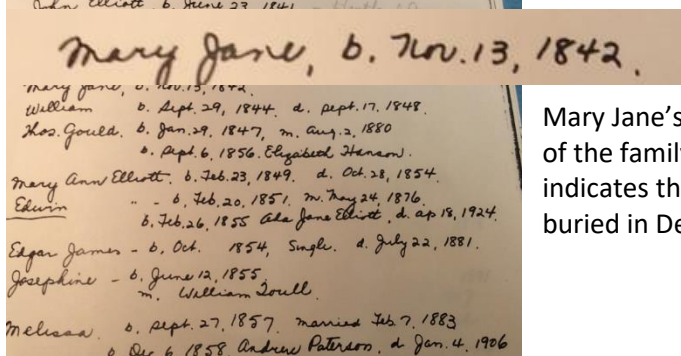 John Elliott, b. June 23, 1841
Mary Jane, b. Nov. 13, 1842.
Mary Jane, b. Nov. 13, 1842.
William b. Sept. 29, 1844. d. Sept. 17, 1848.
Thos. Gould. b. Jan. 29, 1847, m. Aug. 2, 1880
b. Sept. 6, 1856. Elizabeth Hanson.
Mary Ann Elliott. b. Feb. 23, 1849. d. Oct. 28, 1854.
Edwin " - b. Feb. 20, 1851. m. May 24, 1876.
b. Feb. 26, 1855 Ada Jane Elliott, d. ap 18, 1924.
Edgar James - b. Oct. 1854, Single. d. July 22, 1881.
Josephine - b. June 12, 1855.
m. William Toull.
Melissa. b. Sept. 27, 1857. married Feb. 7, 1883
b. Dec 6, 1858, Andrew Paterson, d Jan. 4, 1906
Mary Jane's
of the famil
indicates th
buried in De